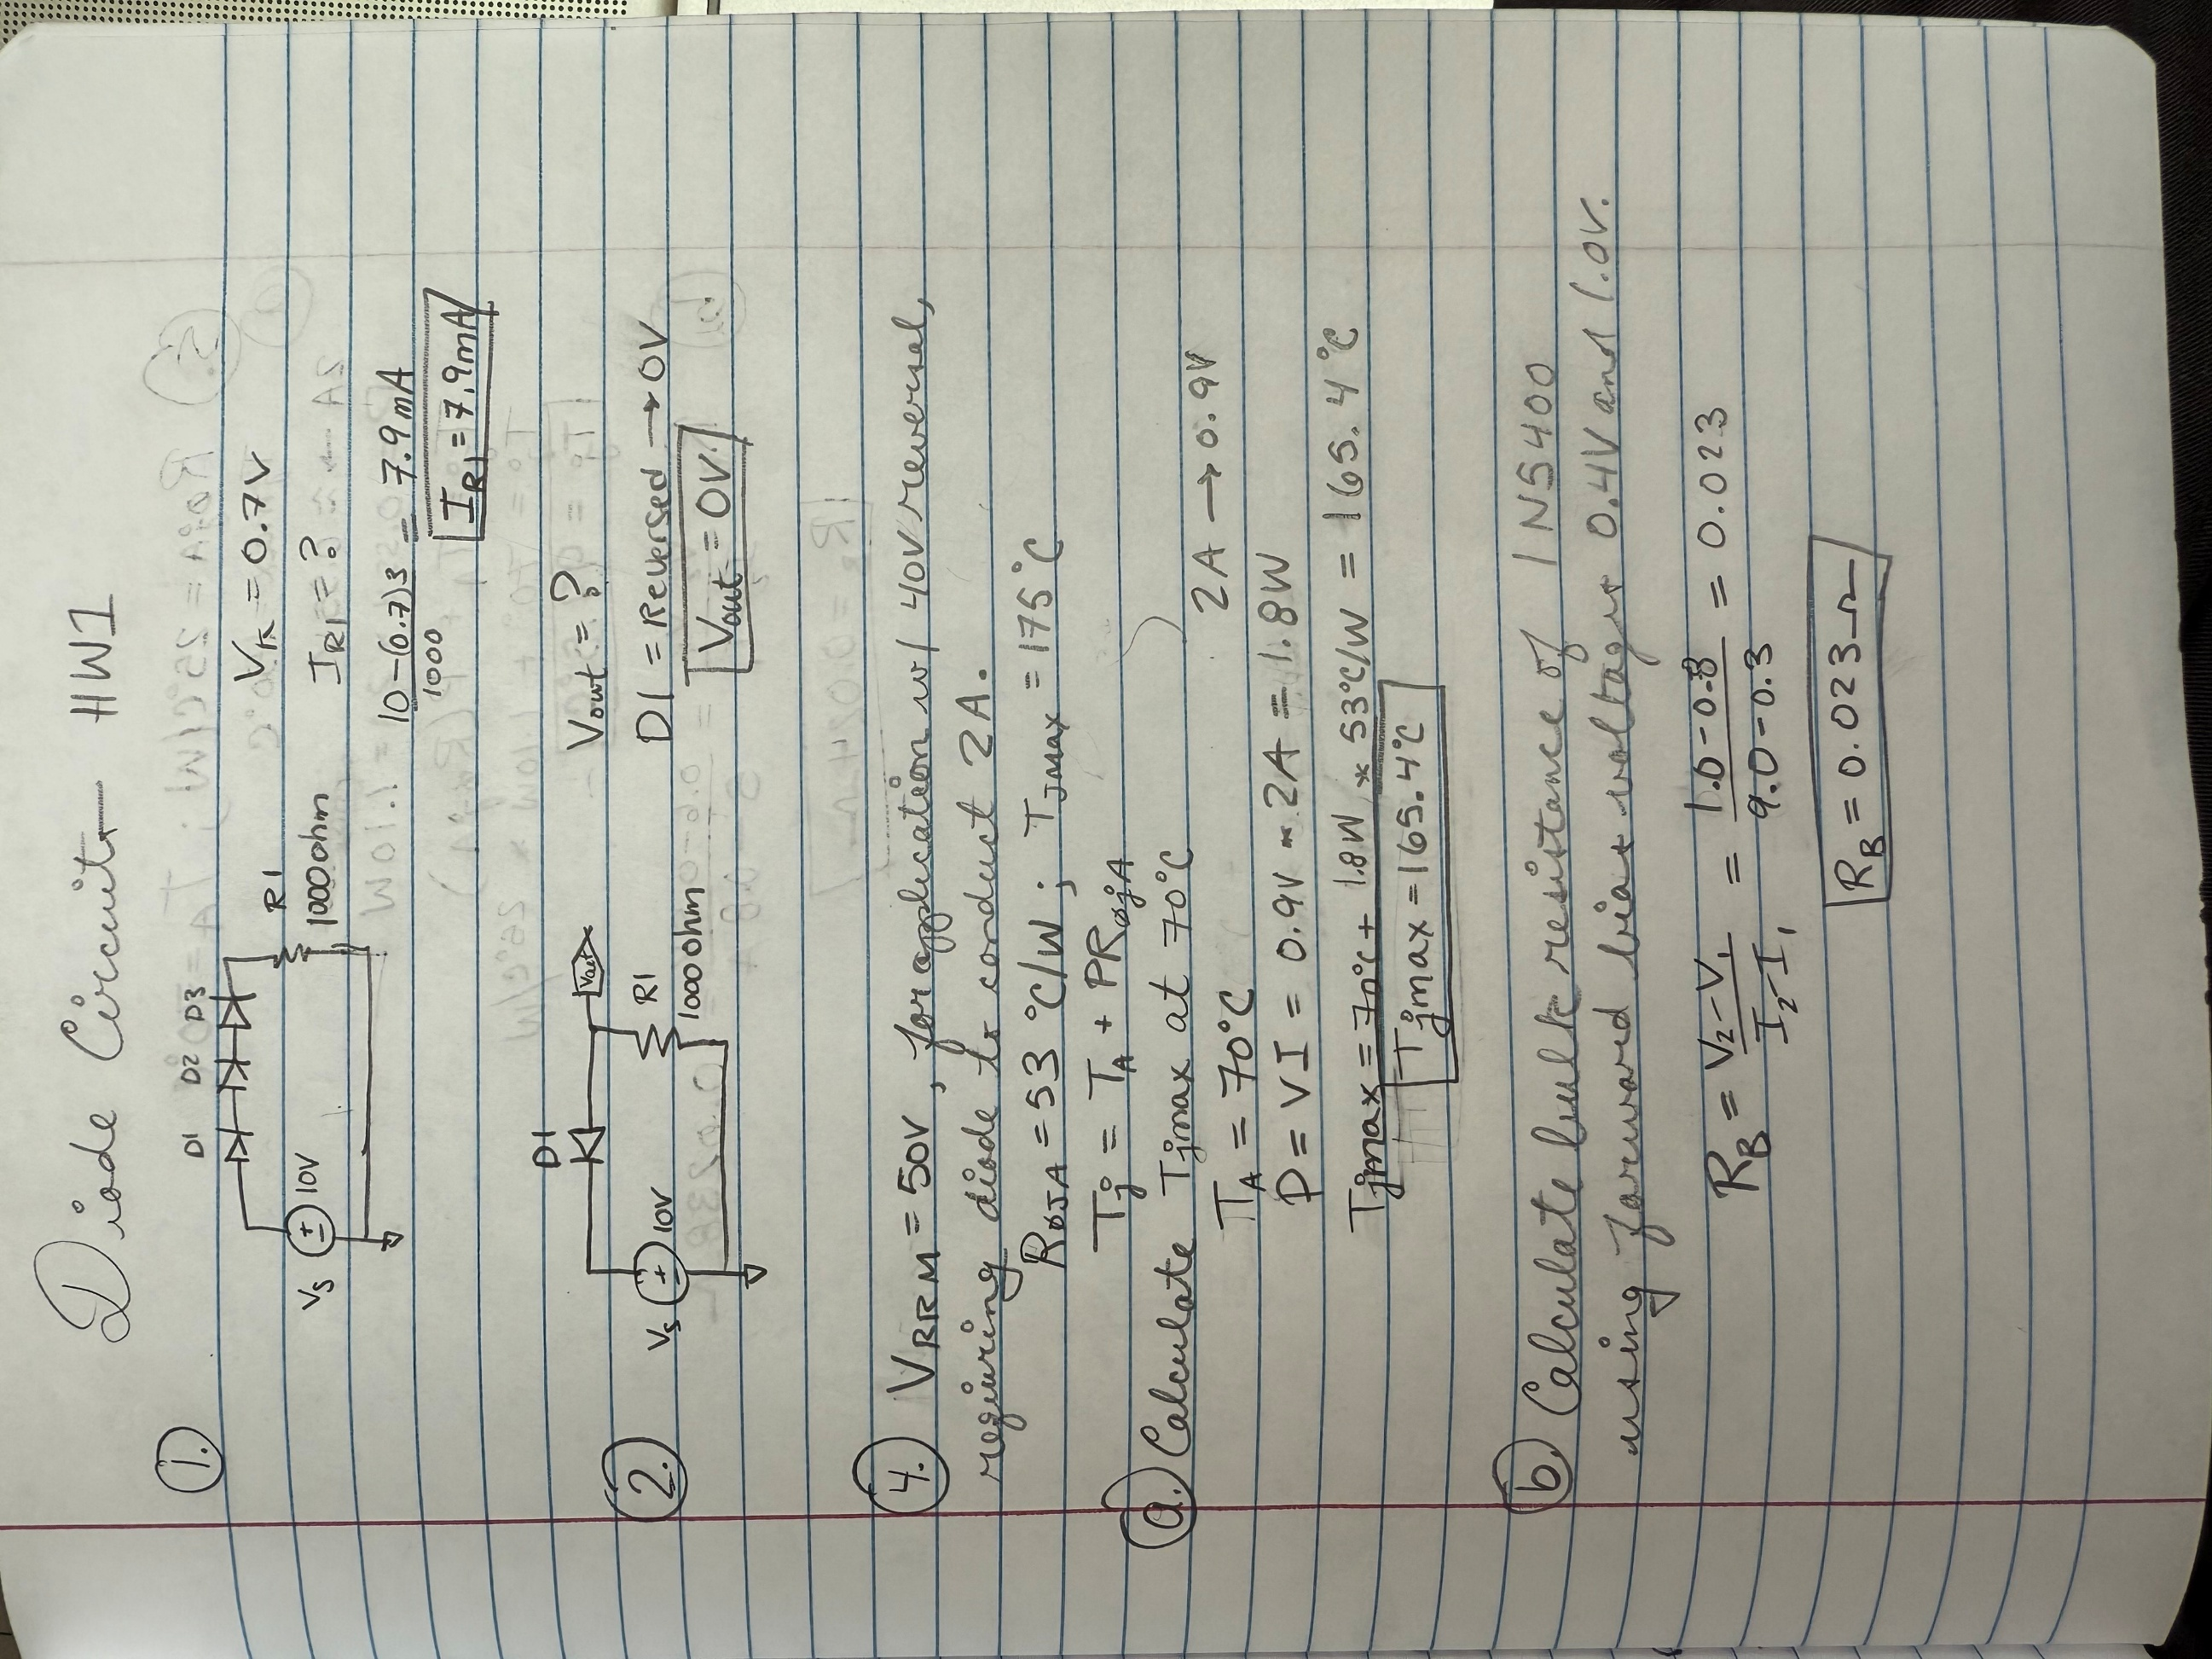 Diode Circuit HW1
1.
D1 D2 D3
R1
1000ohm
Vs
10V
VK = 0.7V
IR1 = ?
10-(0.7)3 = 7.9mA
1000
IR1 = 7.9mA
2.
D1
Vout
R1
1000ohm
Vs
10V
Vout = ?
D1 = Reversed → 0V
Vout = 0V
4. VRRM = 50V, for application w/ 40V reversal,
requiring diode to conduct 2A.
RθJA = 53 °C/W; TJMAX = 175°C
Tj = TA + PRθjA
a. Calculate Tjmax at 70°C
TA = 70°C
2A → 0.9V
P = VI = 0.9V * 2A = 1.8W
Tjmax = 70°C + 1.8W * 53°C/W = 165.4°C
Tjmax = 165.4°C
b. Calculate bulk resistance of 1N5400
using forward bias voltages 0.4V and 1.0V.
RB = V2-V1 = 1.0-0.8 = 0.023
I2-I1 9.0-0.3
RB = 0.023Ω